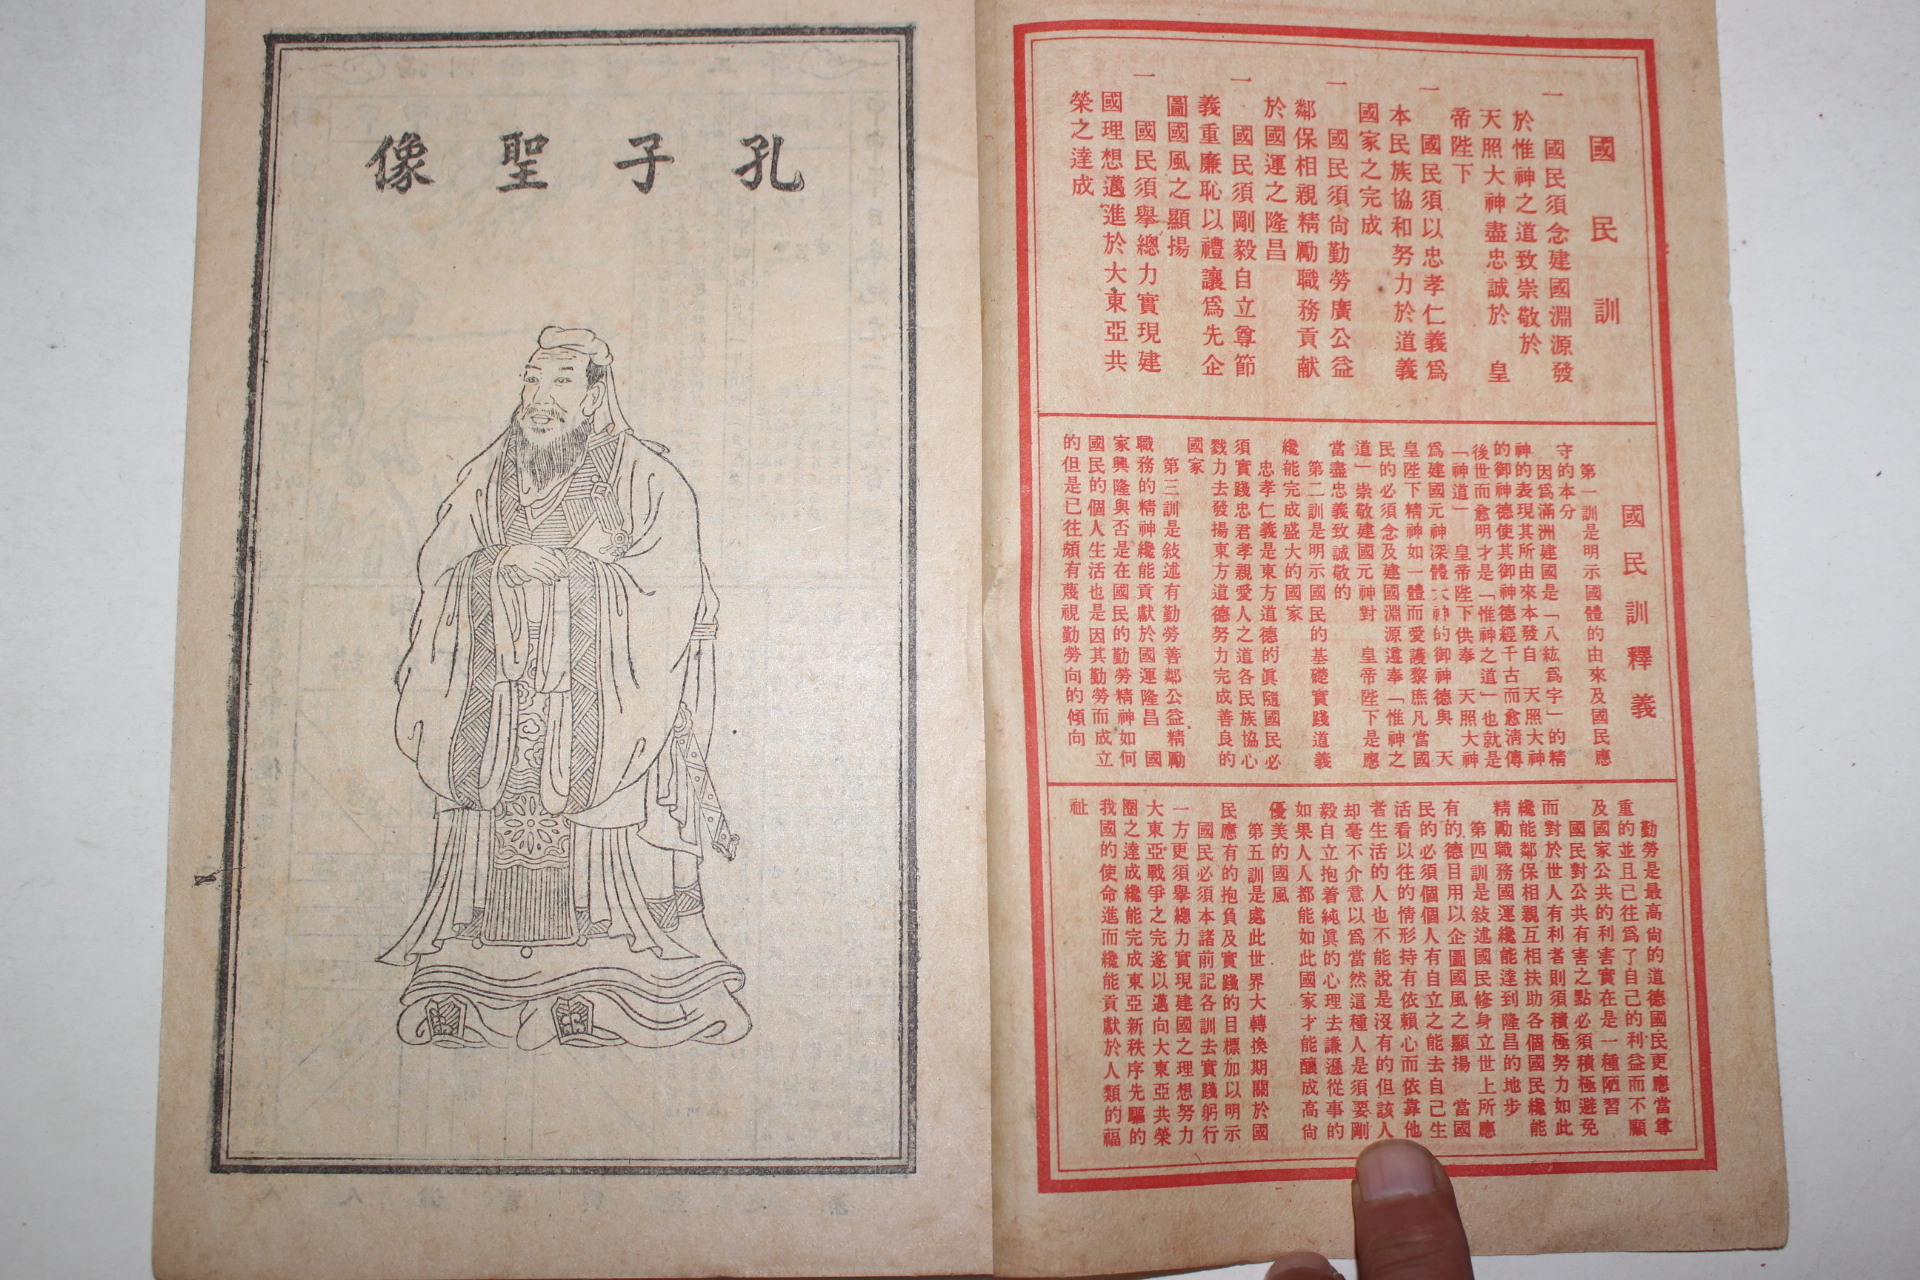 國民訓
一 國民須念建國淵源發
於惟神之道致崇敬於
天照大神盡忠誠於 皇
帝陛下
一 國民須以忠孝仁義爲
本民族協和努力於道義
國家之完成
一 國民須尙勤勞廣公益
鄰保相親精勵職務貢献
於國運之隆昌
一 國民須剛毅自立尊節
義重廉恥以禮讓爲先企
圖國風之顯揚
一 國民須擧總力實現建
國理想邁進於大東亞共
榮之達成
國民訓釋義
第一訓是明示國體的由來及國民應
守的本分
因爲滿洲建國是「八紘爲宇」的精
神的表現其所由來本發自 天照大神
的御神德使其御神德經千古而愈淸傳
後世而愈明才是「惟神之道」也就是
「神道」 皇帝陛下供奉 天照大神
爲建國元神深體大神的御神德與 天
皇陛下精神如一體而愛護黎庶凡當國
民的必須念及建國淵源遵奉「惟神之
道」崇敬建國元神對 皇帝陛下是應
當盡忠義致誠敬的
第二訓是明示國民的基礎實踐道義
纔能完成盛大的國家
忠孝仁義是東方道德的眞隨國民必
須實踐忠君孝親愛人之道各民族協心
戮力去發揚東方道德努力完成善良的
國家
第三訓是敍述有勤勞善鄰公益精勵
職務的精神纔能貢獻於國運隆昌 國
家興隆與否是在國民的勤勞精神如何
國民的個人生活也是因其勤勞而成立
的但是已往頗有蔑視勤勞向的傾向
勤勞是最高尙的道德國民更應當尊
重的並且已往爲了自己的利益而不顧
及國家公共的利害實在是一種陋習
國民對公共有害之點必須積極避免
而對於世人有利者則須積極努力如此
纔能鄰保相親互相扶助各個國民纔能
精勵職務國運纔能達到隆昌的地步
第四訓是敍述國民修身立世上所應
有的德目用以企圖國風之顯揚 當國
民的必須個個人有自立之能去自己生
活看以往的情形持有依賴心而依靠他
者生活的人也不能說是沒有的但該人
却毫不介意以爲當然這種人是須要剛
毅自立抱着純眞的心理去謙遜從事的
如果人人都能如此國家才能釀成高尙
優美的國風
第五訓是處此世界大轉換期關於國
民應有的抱負及實踐的目標加以明示
國民必須本諸前記各訓去實踐躬行
一方更須擧總力實現建國之理想努力
大東亞戰爭之完遂以邁向大東亞共榮
圈之達成纔能完成東亞新秩序先驅的
我國的使命進而纔能貢獻於人類的福
祉
孔子聖像